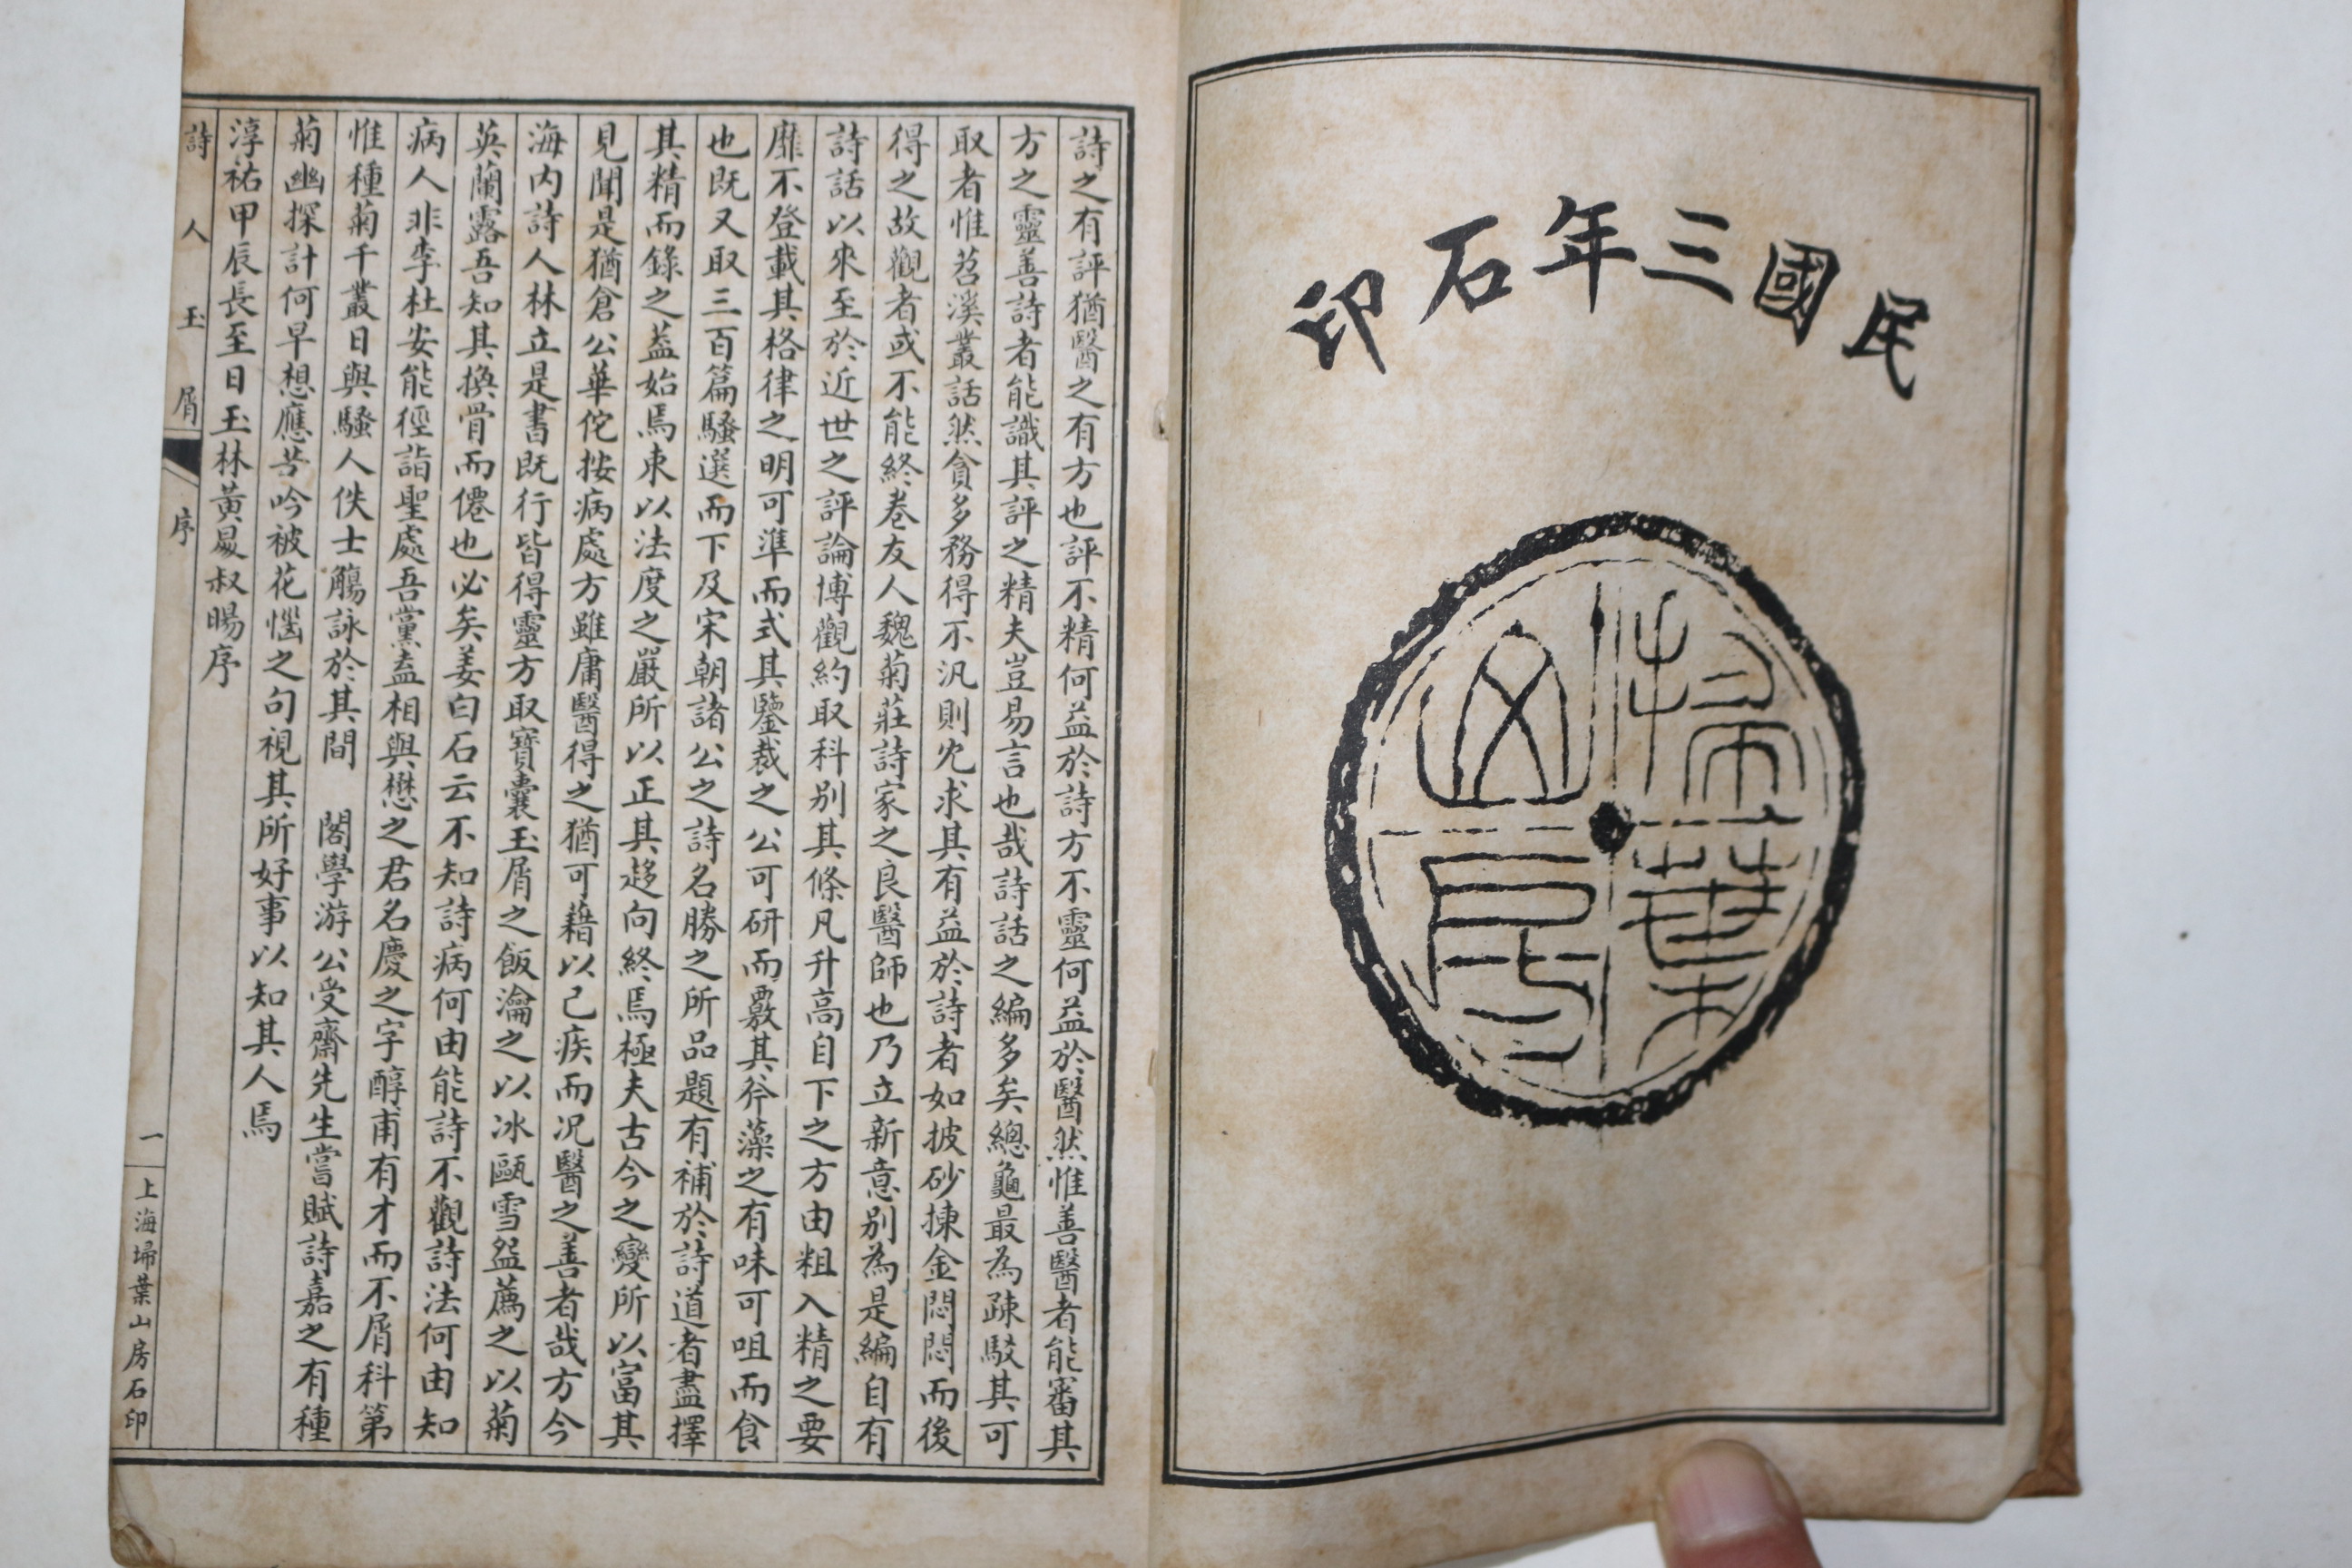 民國三年石印
掃葉山房
詩之有評猶醫之有方也評不精何益於詩方不靈何益於醫然惟善醫者能審其
方之靈善詩者能識其評之精夫豈易言也哉詩話之編多矣總龜最為疎駁其可
取者惟苕溪叢話然貪多務得不汎則冗求其有益於詩者如披砂揀金悶悶而後
得之故觀者或不能終卷友人魏菊莊詩家之良醫師也乃立新意別為是編自有
詩話以來至於近世之評論博觀約取科別其條凡升高自下之方由粗入精之要
靡不登載其格律之明可準而式其鑒裁之公可研而覈其斧藻之有味可咀而食
也既又取三百篇騷選而下及宋朝諸公之詩名勝之所品題有補於詩道者盡擇
其精而錄之葢始焉束以法度之嚴所以正其趍向終焉極夫古今之變所以富其
見聞是猶倉公華佗按病處方雖庸醫得之猶可藉以已疾而况醫之善者哉方今
海內詩人林立是書既行皆得靈方取寶囊玉屑之飯瀹之以冰甌雪盌薦之以菊
英蘭露吾知其換骨而僊也必矣姜白石云不知詩病何由能詩不觀詩法何由知
病人非李杜安能徑詣聖處吾黨盍相與懋之君名慶之字醇甫有才而不屑科第
惟種菊千叢日與騷人佚士觴詠於其間 閣學游公受齋先生嘗賦詩嘉之有種
菊幽探計何早想應苦吟被花惱之句視其所好事以知其人焉
淳祐甲辰長至日玉林黃昃叔暘序
詩人玉屑 序 一 上海埽葉山房石印